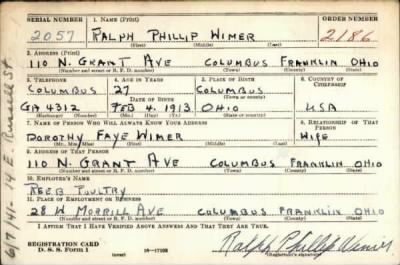 SERIAL NUMBER 1. NAME (Print) ORDER NUMBER
2057 RALPH PHILLIP WIMER 2186
(First) (Middle) (Last)
2. ADDRESS (Print)
110 N. GRANT AVE COLUMBUS FRANKLIN OHIO
(Number and street or R. F. D. number) (Town) (County) (State)
3. TELEPHONE 4. AGE IN YEARS 5. PLACE OF BIRTH 6. COUNTRY OF CITIZENSHIP
COLUMBUS 27 COLUMBUS
DATE OF BIRTH (Town or county)
GA 4312 FEB 4. 1913 OHIO USA
(Exchange) (Number) (Mo.) (Day) (Yr.) (State or country)
7. NAME OF PERSON WHO WILL ALWAYS KNOW YOUR ADDRESS 8. RELATIONSHIP OF THAT PERSON
DOROTHY FAYE WIMER WIFE
(Mr., Mrs., Miss) (First) (Middle) (Last)
9. ADDRESS OF THAT PERSON
110 N. GRANT AVE COLUMBUS FRANKLIN OHIO
(Number and street or R. F. D. number) (Town) (County) (State)
10. EMPLOYER'S NAME
REEB POULTRY
11. PLACE OF EMPLOYMENT OR BUSINESS
28 W MORRILL AVE COLUMBUS FRANKLIN OHIO
(Number and street or R. F. D. number) (Town) (County) (State)
I AFFIRM THAT I HAVE VERIFIED ABOVE ANSWERS AND THAT THEY ARE TRUE.
REGISTRATION CARD
D. S. S. Form 1 (over) Ralph Phillip Wimer
(Registrant's signature)
6/7/41 - 14 E. Russell St.